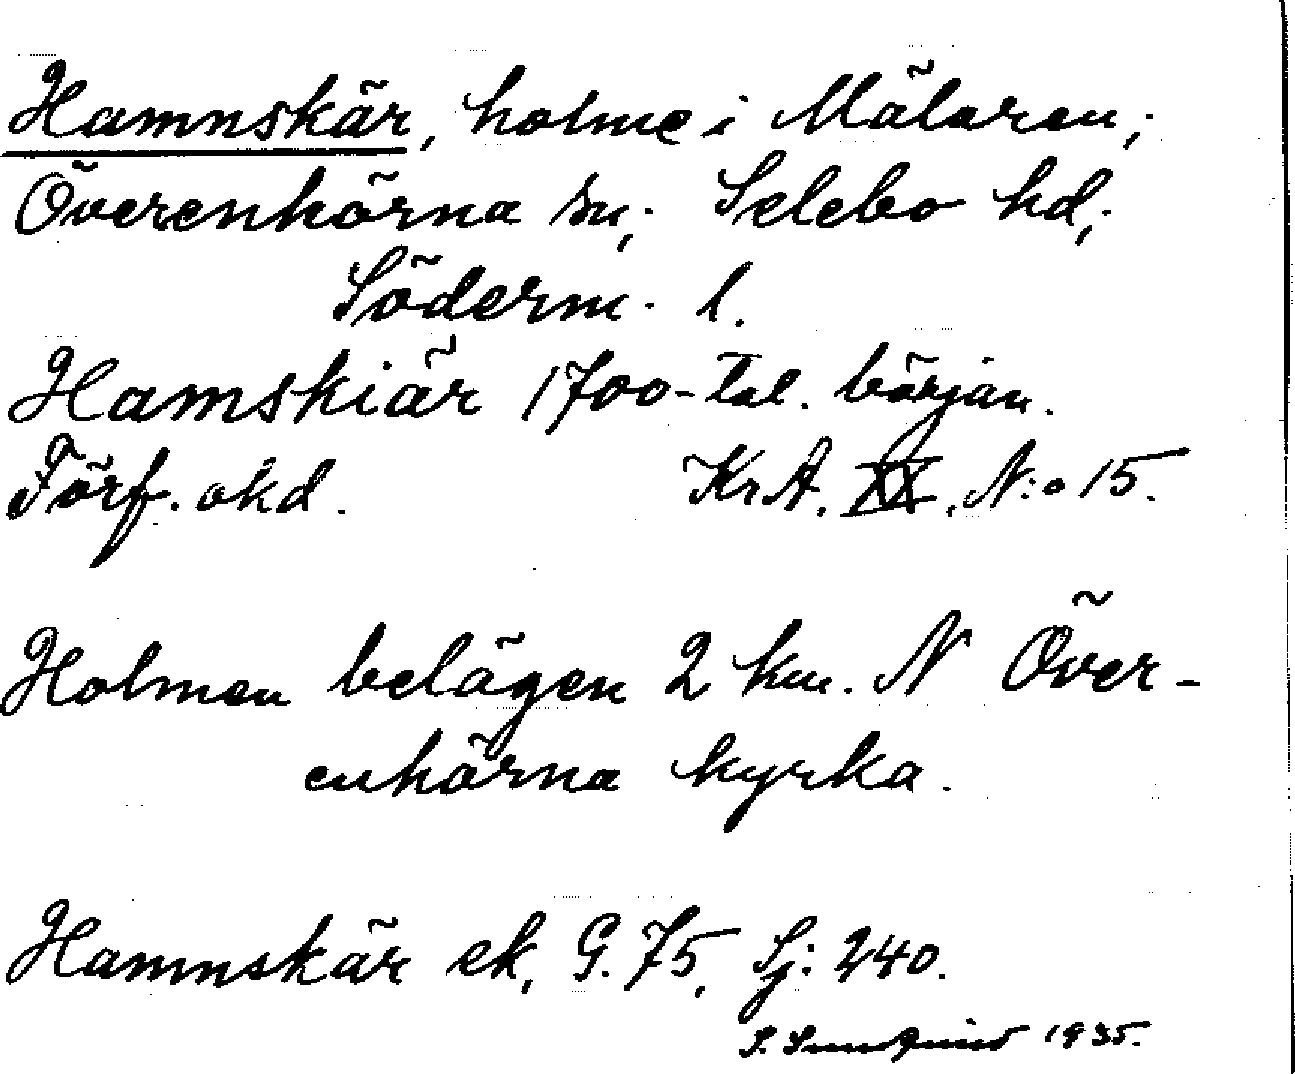 Hamnskär, holme i Mälaren;
Överenhörna sn; Selebo hd;
Söderm. l.
Hamskiär 1700-tal. början.
Förf. okd. KrA. XX. N:o 15.
Holmen belägen 2 km. N Över-
enhörna kyrka.
Hamnskär ek, G. 75, Sj: 240.
S. 1935.